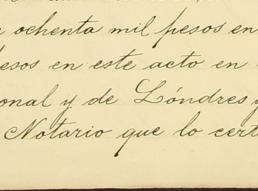 ochenta mil pesos en
pesos en este acto en
onal y de Lóndres y
Notario que lo cert